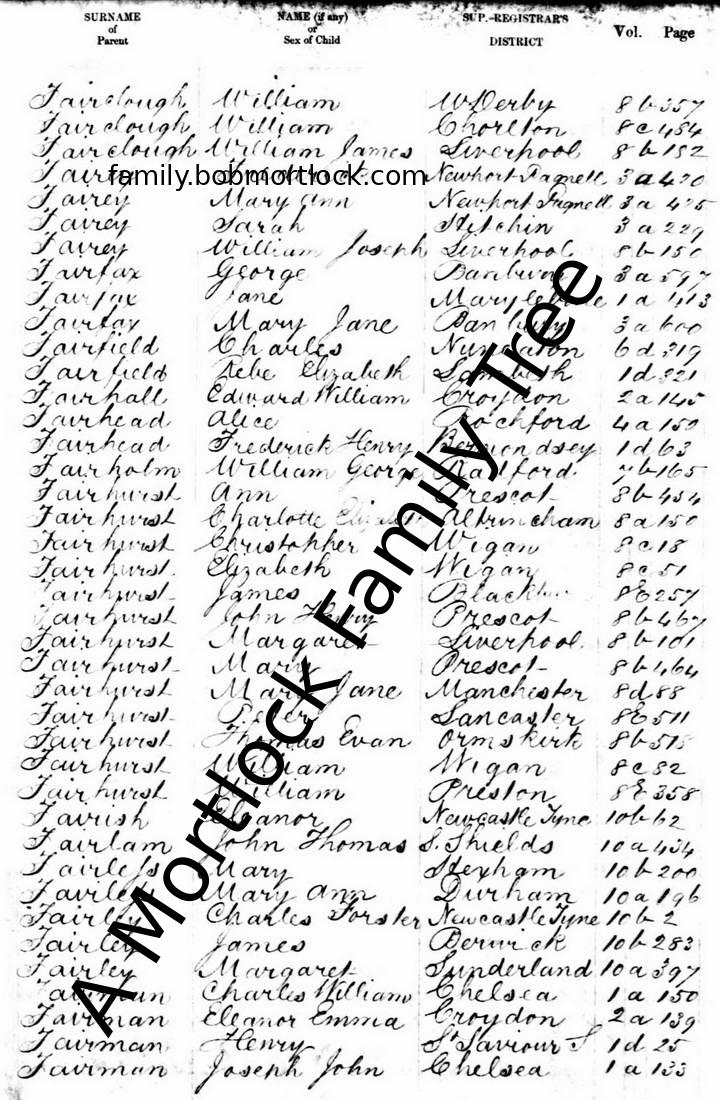 SURNAME of Parent NAME (if any) or Sex of Child SUP.-REGISTRAR'S DISTRICT Vol. Page
Fairclough William W Derby 8b 357
Fairclough William Chorlton 8c 484
Fairclough William James Liverpool 8b 152
family.bobmortlock.com Newport Pagnell 3a 420
Fairey Mary Ann Newport Pagnell 3a 425
Fairey Sarah Hitchin 3a 229
Fairey William Joseph Liverpool 8b 150
Fairfax George Banbury 3a 597
Fairfax Jane Marylebone 1a
Fairfax Mary Jane Banbury 3a 600
Fairfield Charles Nuneaton 6d 319
Fairfield Elizabeth Lambeth 1d 321
Fairhall Edward William Croydon 2a 145
Fairhead Alice Rochford 4a 159
Fairhead Frederick Henry Bermondsey 1d 63
Fairholm William George Radford 7b 165
Fairhurst Ann Prescot 8b 454
Fairhurst Charlotte Elizabeth Altrincham 8a 150
Fairhurst Christopher Wigan 8c 18
Fairhurst Elizabeth Wigan 8c 51
Fairhurst James 8E 257
Fairhurst John Henry Prescot 8b 467
Fairhurst Margaret Liverpool 8b 101
Fairhurst Mary Prescot 8b 464
Fairhurst Mary Jane Manchester 8d 88
Fairhurst Peter Lancaster 8E 511
Fairhurst Thomas Evan Ormskirk 8b 515
Fairhurst William Wigan 8c 82
Fairhurst William Preston 8E 358
Fairish Eleanor Newcastle Tyne 10b 62
Fairlam John Thomas S. Shields 10a 434
Fairless Mary Hexham 10b 200
Fairless Mary Ann Durham 10a 196
Fairley Charles Forster Newcastle Tyne 10b 2
Fairley James Berwick 10b 283
Fairley Margaret Sunderland 10a 397
Fairman Charles William Chelsea 1a 150
Fairman Eleanor Emma Croydon 2a 139
Fairman Henry St Saviour S 1d 25
Fairman Joseph John Chelsea 1a 133
A Mortlock Family Tree